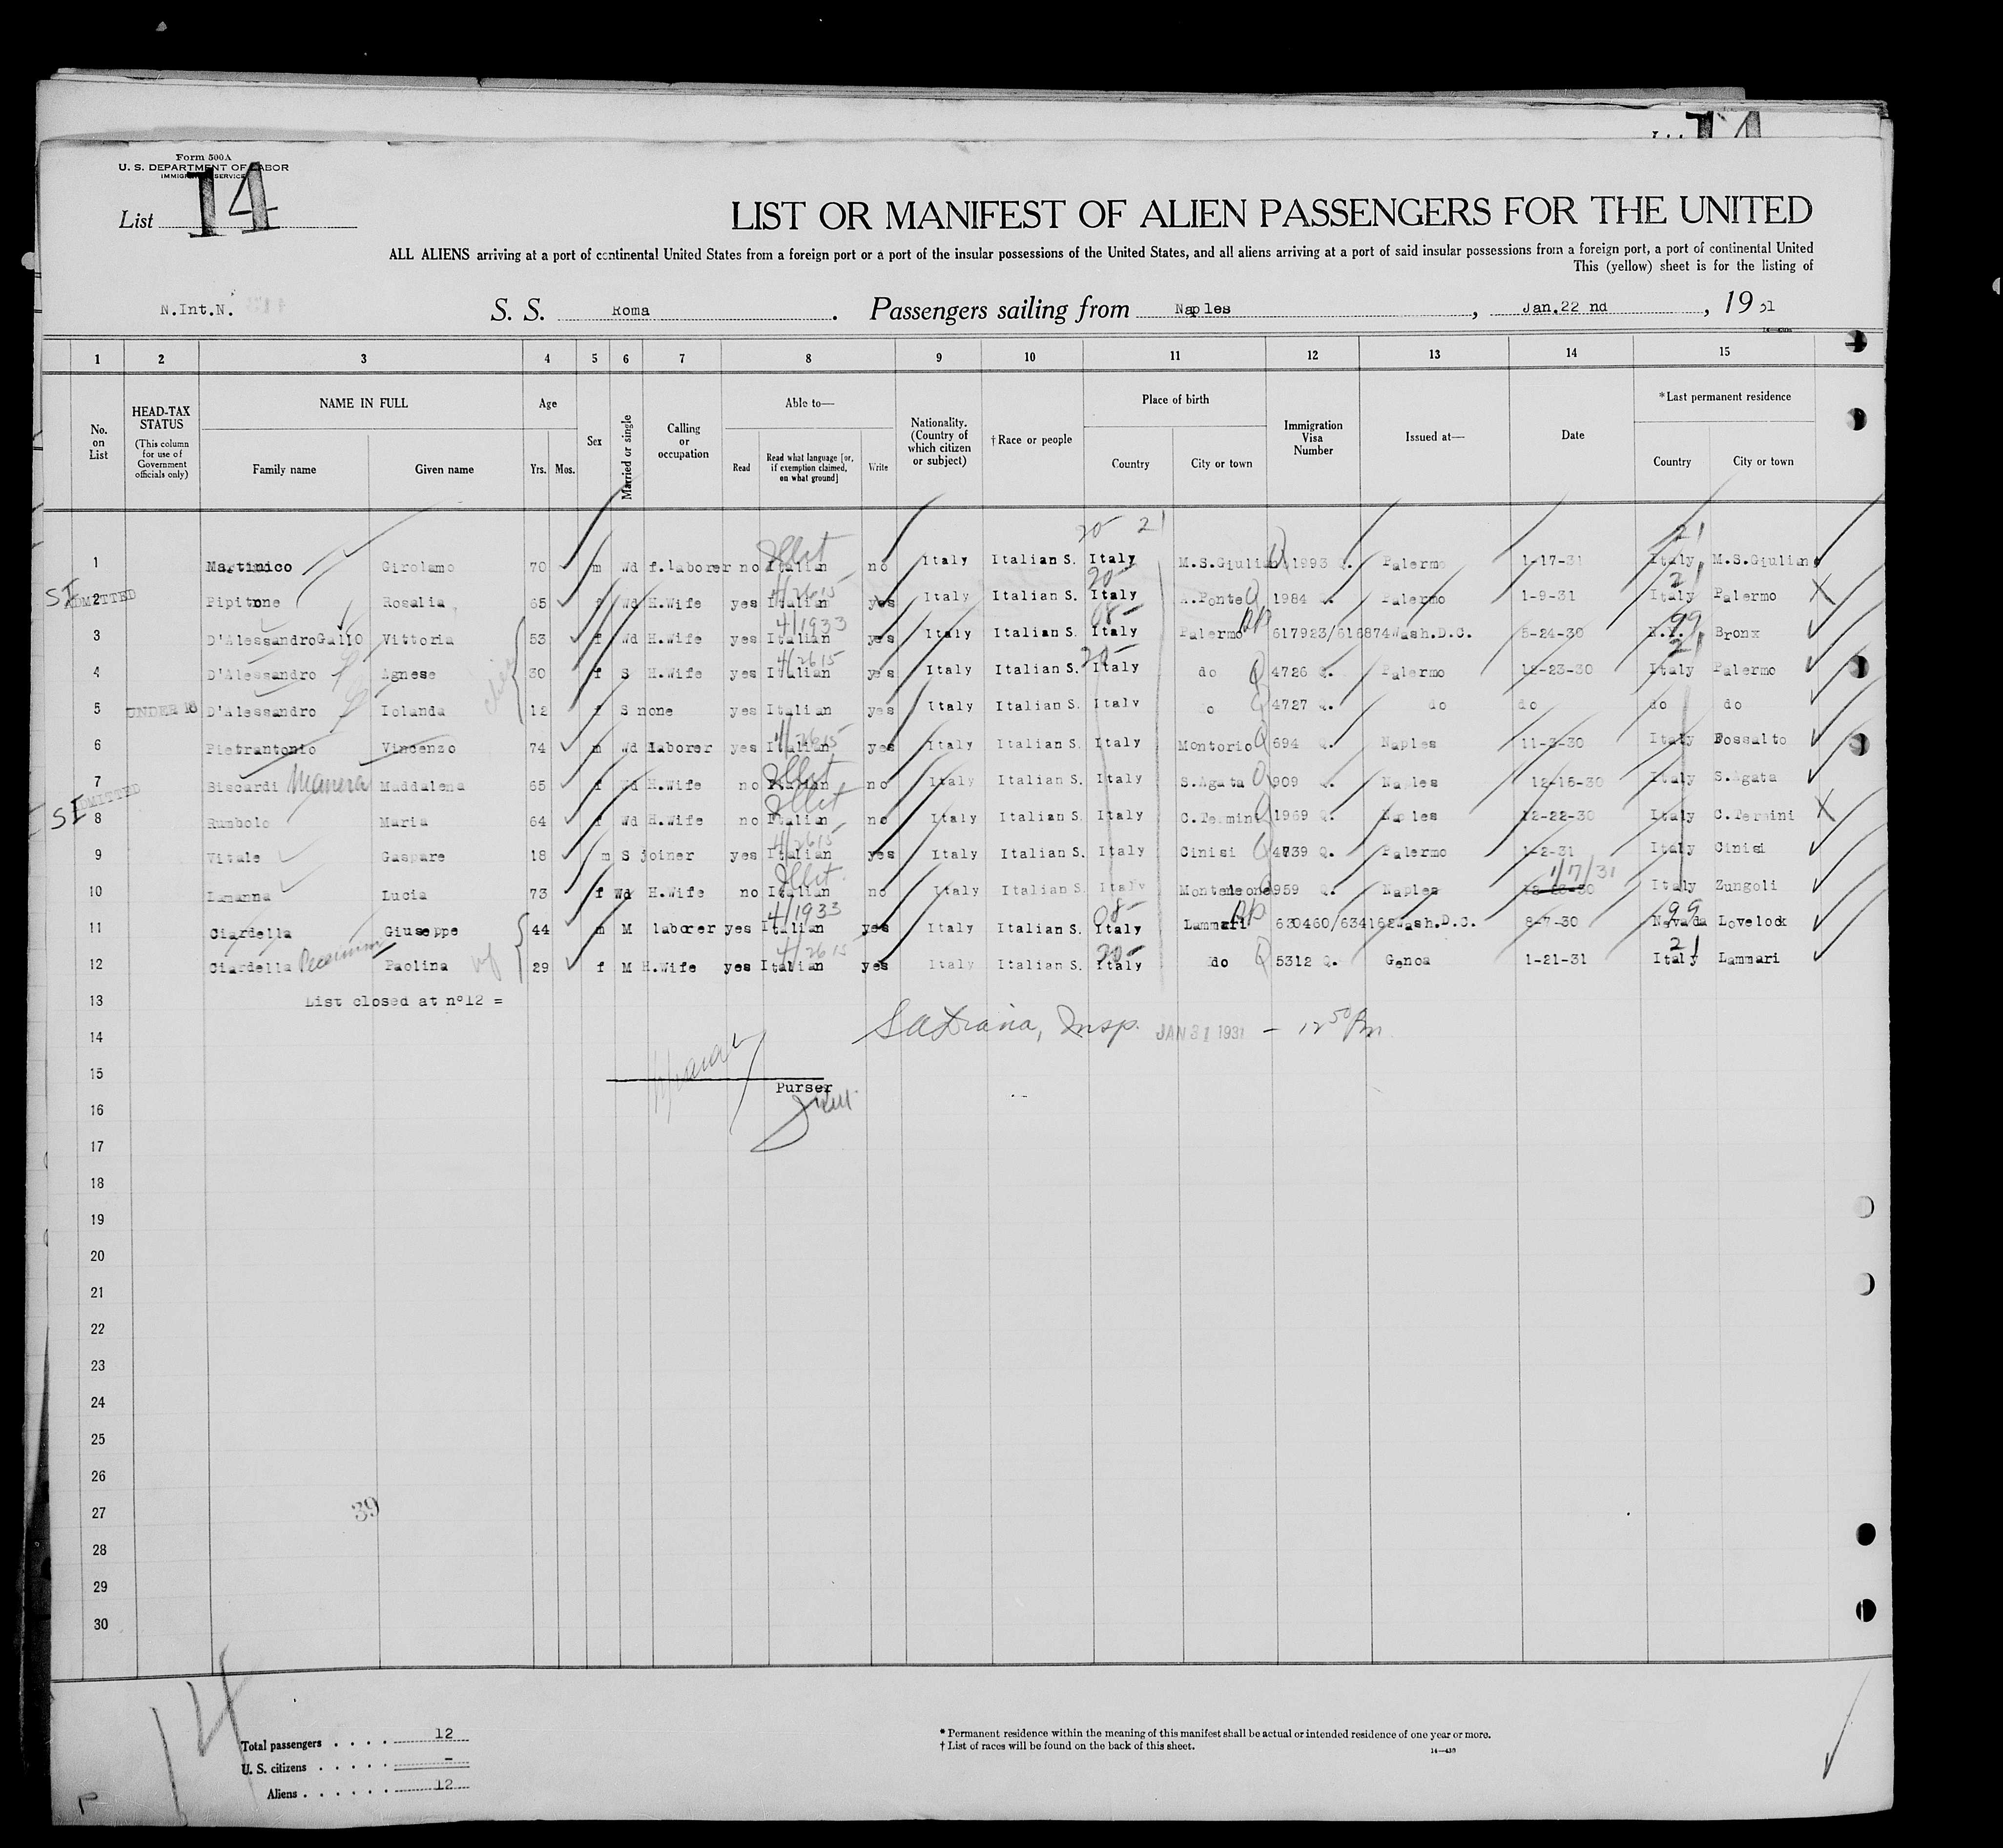 Form 500A
U. S. DEPARTMENT OF LABOR
IMMIGRATION SERVICE
List 14
LIST OR MANIFEST OF ALIEN PASSENGERS FOR THE UNITED
ALL ALIENS arriving at a port of continental United States from a foreign port or a port of the insular possessions of the United States, and all aliens arriving at a port of said insular possessions from a foreign port, a port of continental United
This (yellow) sheet is for the listing of
N.Int.N. S. S. Roma . Passengers sailing from Naples , Jan.22 nd , 19 31
1 2 3 4 5 6 7 8 9 10 11 12 13 14 15
No. on List HEAD-TAX STATUS (This column for use of Government officials only) NAME IN FULL Family name Given name Age Yrs. Mos. Sex Married or single Calling or occupation Able to— Read Read what language [or, if exemption claimed, on what ground] Write Nationality. (Country of which citizen or subject) † Race or people Place of birth Country City or town Immigration Visa Number Issued at— Date * Last permanent residence Country City or town
20 21 21
1 Martinico Girolamo 70 m Wd f.laborer no Italian no Italy Italian S. Italy M.S.Giulian 1993 Q. Palermo 1-17-31 Italy M.S.Giulian
SI ADMITTED 2 Pipitone Rosalia 65 f Wd H.Wife yes Italian yes Italy Italian S. Italy 1984 Q. Palermo 1-9-31 Italy Palermo X
3 D'AlessandroGallo Vittoria 53 f Wd H.Wife yes Italian 4/1933 yes Italy Italian S. Italy Palermo 617923/616874 Wash.D.C. 5-24-30 N.Y. 99 Bronx
4 D'Alessandro Agnese 30 f S H.Wife yes Italian 4/2615 yes Italy Italian S. Italy do Q 4726 Q. Palermo 12-23-30 Italy 21 Palermo
5 UNDER 16 D'Alessandro Iolanda 12 f S none yes Italian yes Italy Italian S. Italy do Q 4727 Q. do do do do
6 Pietrantonio Vincenzo 74 m Wd laborer yes Italian 4/2615 yes Italy Italian S. Italy Montorio Q 694 Q. Naples 11-3-30 Italy Fossalto
7 Biscardi Manera Maddalena 65 f Wd H.Wife no Italian no Italy Italian S. Italy S.Agata Q 909 Q. Naples 12-15-30 Italy S.Agata
SI ADMITTED 8 Rumbolo Maria 64 f Wd H.Wife no Italian no Italy Italian S. Italy C.Termini 1969 Q. Naples 12-22-30 Italy C.Termini X
9 Vitale Gaspare 18 m S joiner yes Italian 4/2615 yes Italy Italian S. Italy Cinisi Q 4739 Q. Palermo 1-2-31 Italy Cinisi
10 Lamanna Lucia 73 f Wd H.Wife no Italian no Italy Italian S. Italy Monteleone 959 Q. Naples 1/17/31 Italy Zungoli
11 Ciardella Giuseppe 44 m M laborer yes Italian 4/1933 yes Italy Italian S. Italy Lammari 630460/634162 Wash.D.C. 8-7-30 Nevada 99 Lovelock
12 Ciardella Paolina 29 f M H.Wife yes Italian 4/2615 yes Italy Italian S. Italy do Q 5312 Q. Genoa 1-21-31 Italy 21 Lammari
13 List closed at n°12 =
14 Insp. JAN 31 1931 – 12 50 Pm
15
Purser
16
17
18
19
20
21
22
23
24
25
26
27 39
28
29
30
14
Total passengers . . . . 12
U. S. citizens . . . . . –
Aliens . . . . . . 12
* Permanent residence within the meaning of this manifest shall be actual or intended residence of one year or more.
† List of races will be found on the back of this sheet.
14—430